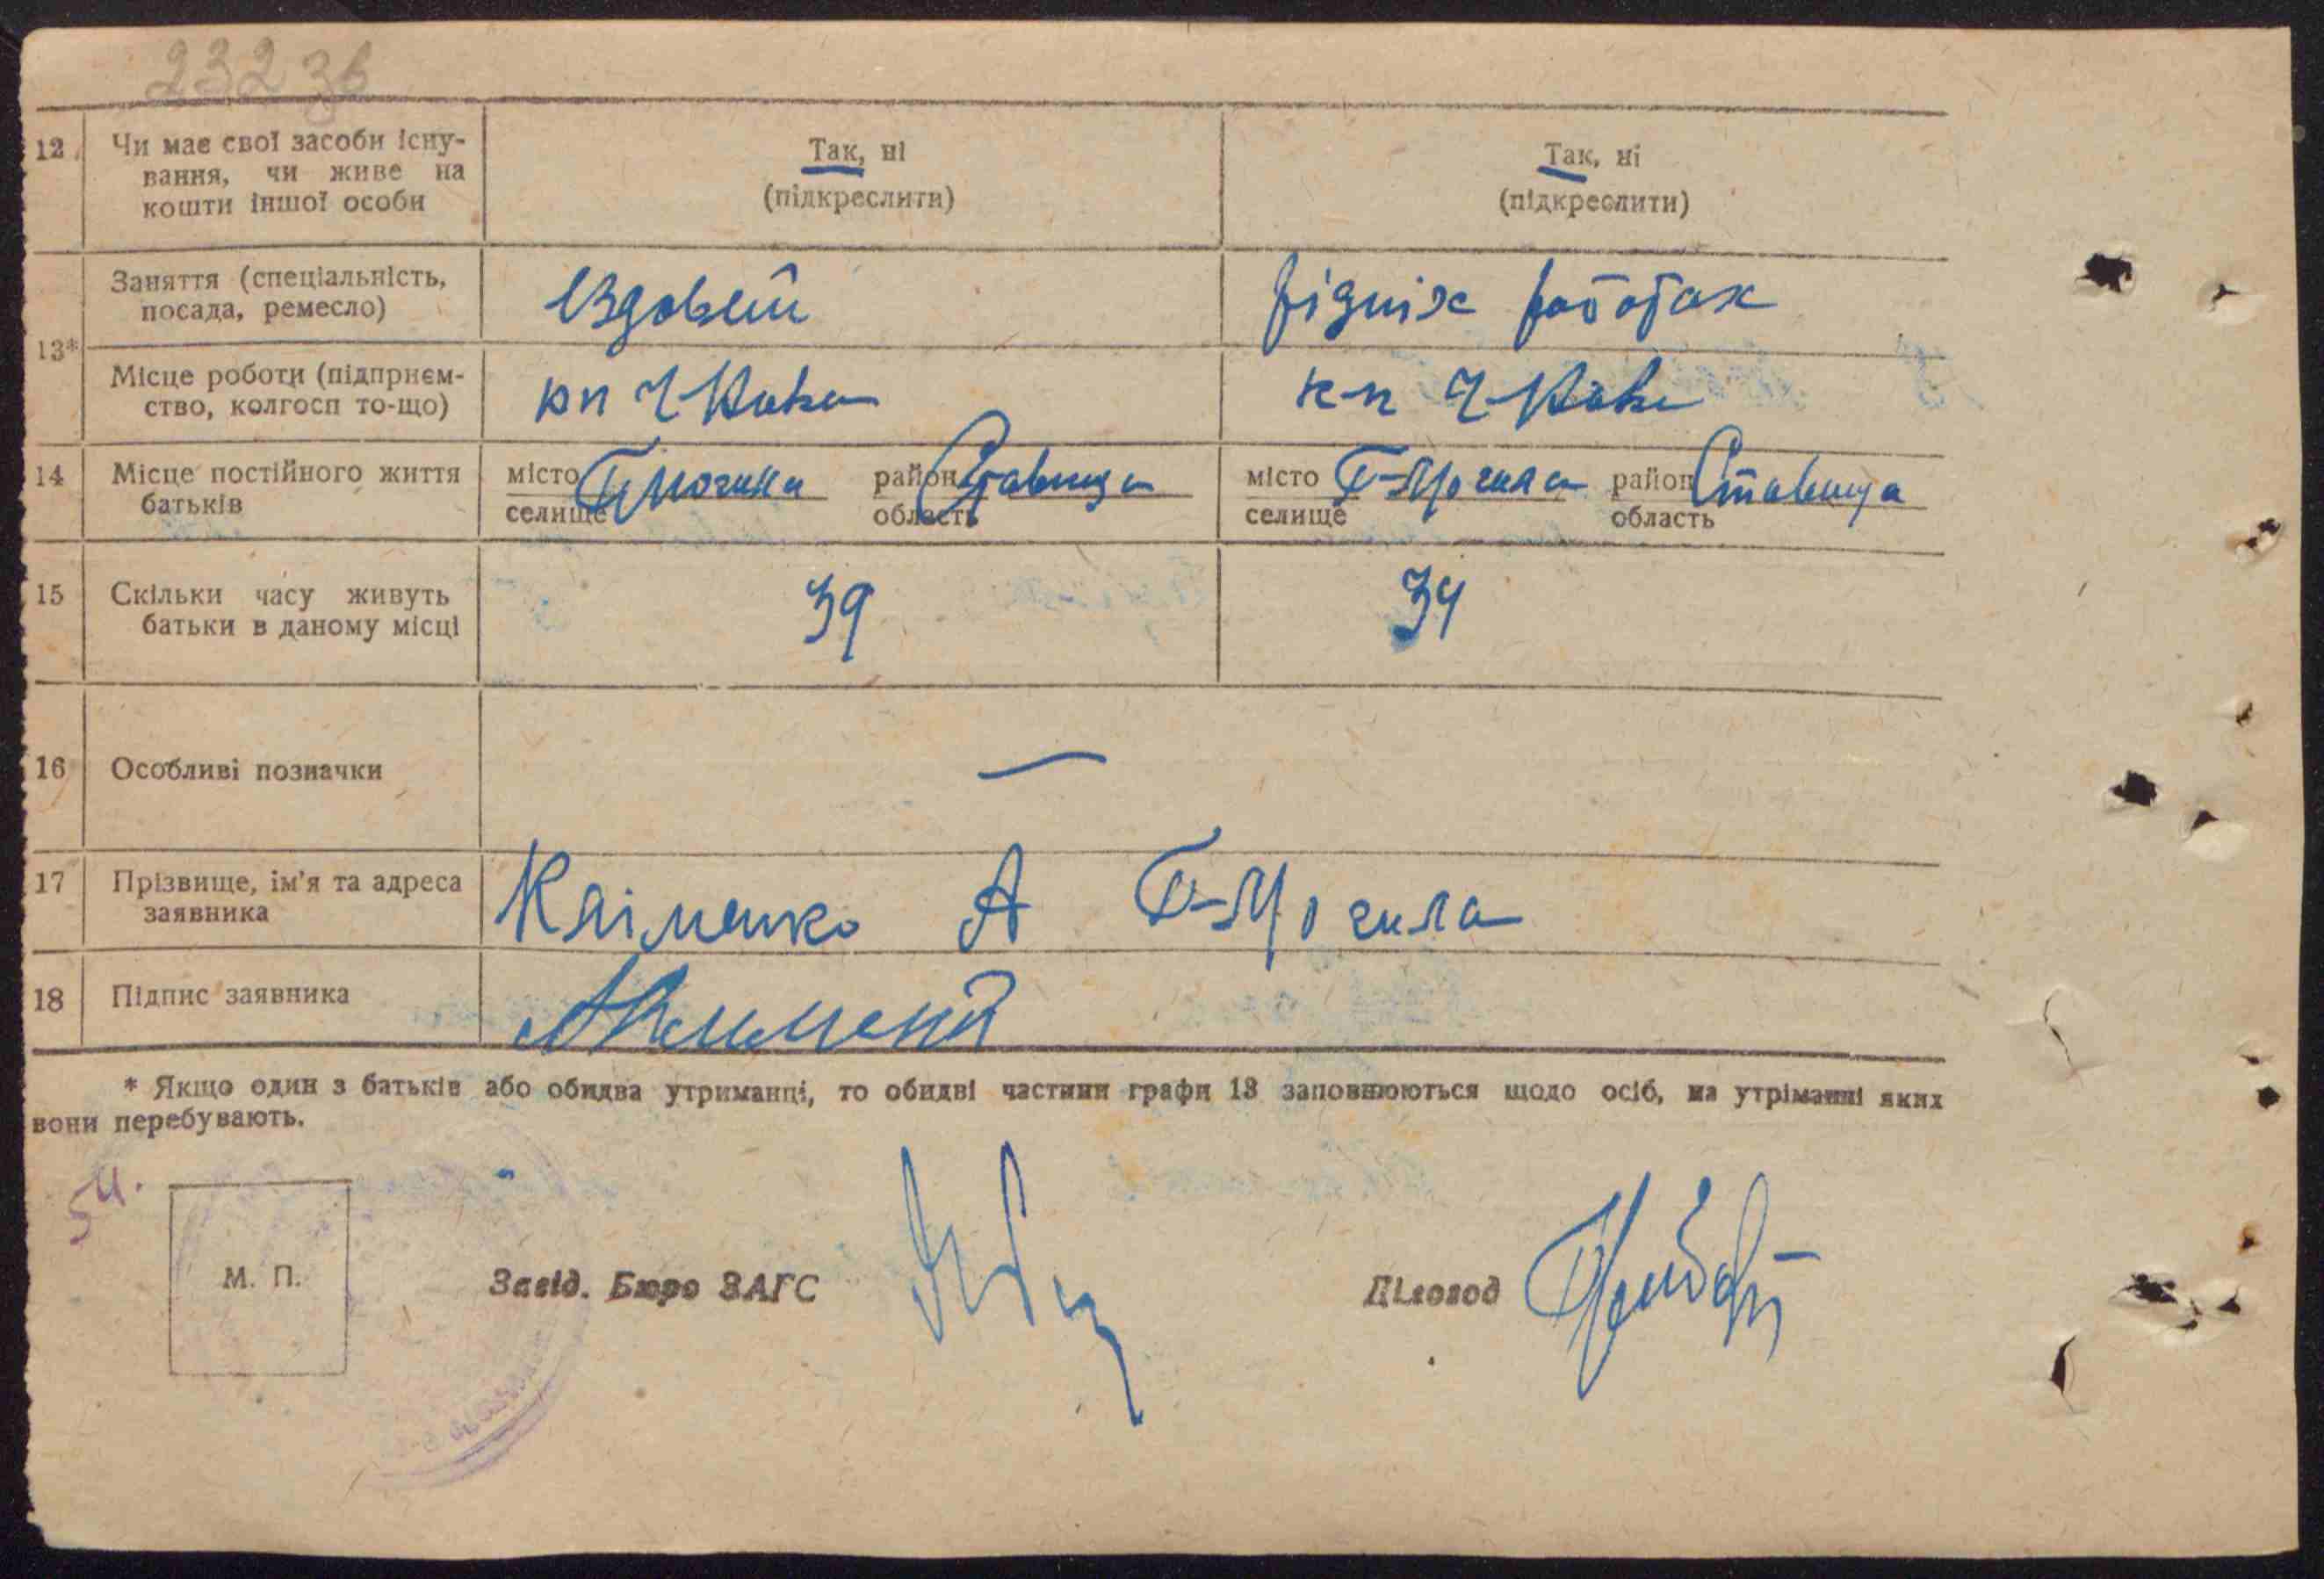 232 зв
12 Чи має свої засоби існу-
вання, чи живе на
кошти іншої особи
Так, ні
(підкреслити)
Так, ні
(підкреслити)
13*
Заняття (спеціальність,
посада, ремесло)
Їздовий
рідніх роботах
Місце роботи (підприєм-
ство, колгосп то-що)
кп
к-п
14 Місце постійного життя
батьків
місто
селище
район Ставища
область
місто Г-Могила
селище
район Ставища
область
15 Скільки часу живуть
батьки в даному місці
39
34
16 Особливі позначки
—
17 Прізвище, ім'я та адреса
заявника
Кліменко А Г-Могила
18 Підпис заявника
* Якщо один з батьків або обидва утриманці, то обидві частини графи 13 заповнюються щодо осіб, на утріманні яких
вони перебувають.
М. П.
Завід. Бюро ЗАГС
Діловод